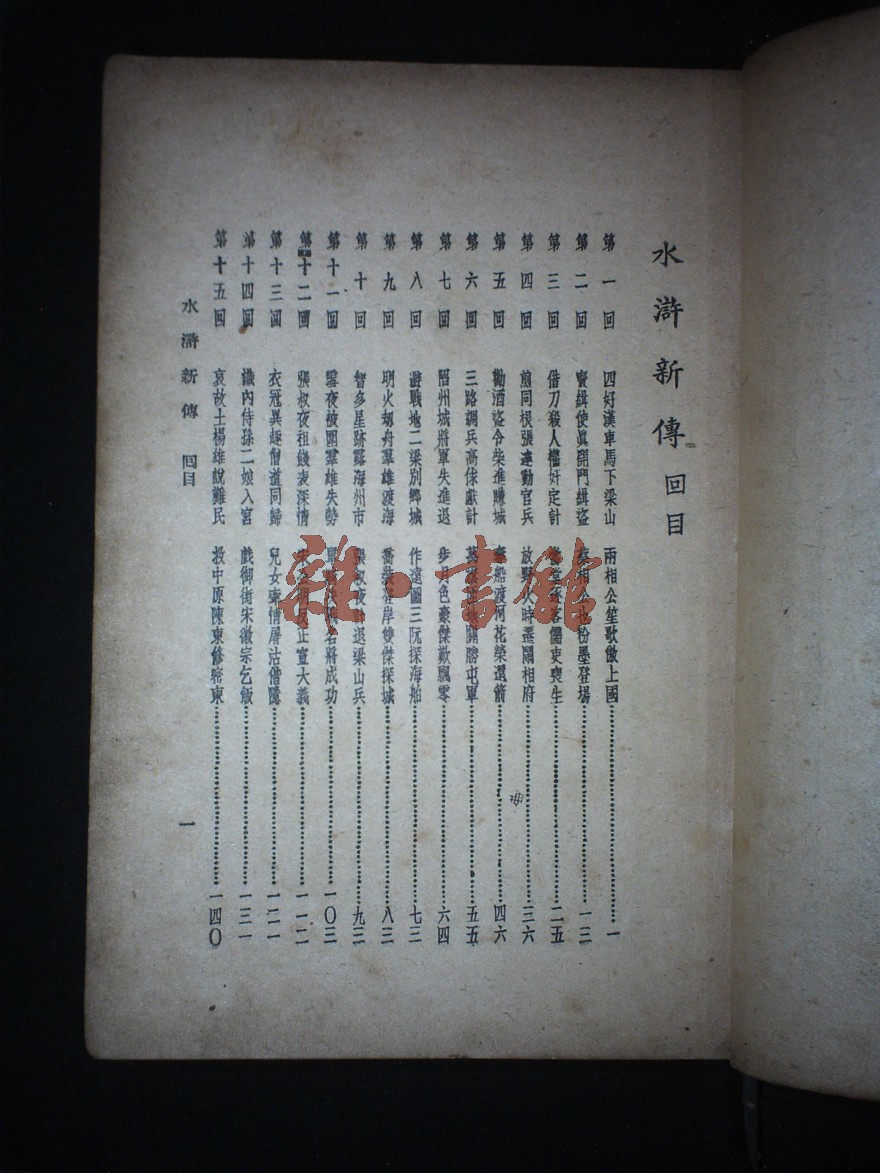 水滸新傳 回目
第一回 四好漢車馬下梁山 兩相公笙歌傲上國 一
第二回 賣緝使眞開門緝盜 粉墨登場 一三
第三回 借刀殺人權奸定計 客儒吏喪生 二五
第四回 煎同根張逵動官兵 放野火時遷鬧相府 三六
第五回 勸酒盜令柴進賺城 渡河花榮還箭 四六
第六回 三路調兵高俅獻計 關勝屯軍 五五
第七回 陷州城將軍失進退 步月色豪傑歎飄零 六四
第八回 游戰地二梁別鄉城 作遠圖三阮探海舶 七三
第九回 明火刼舟羣雄渡海 喬裝登岸雙傑探城 八三
第十回 智多星跡露海州市 張叔夜計退梁山兵 九三
第十一回 雪夜被圍羣雄失勢 將成功 一〇三
第十二回 張叔夜祖餞表深情 反正宣大義 一一二
第十三回 衣冠異趣僧道同歸 兒女齊情屠沽偕隱 一二一
第十四回 讖內侍孫二娘入宮 戲御街朱徽宗乞飯 一三一
第十五回 哀故土楊雄說難民 救中原陳東修密柬 一四〇
水滸新傳 回目
一
雜·書館